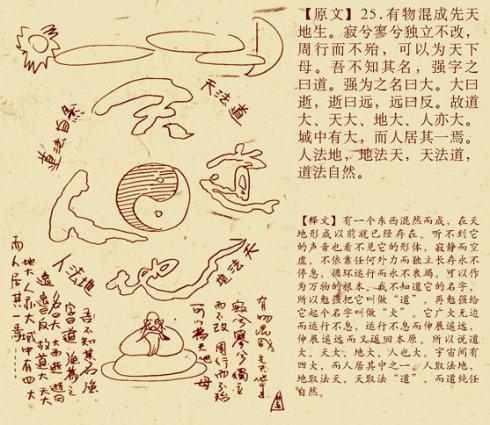 【原文】25.有物混成先天
地生。寂兮寥兮独立不改,
周行而不殆,可以为天下
母。吾不知其名,强字之
曰道。强为之名曰大。大曰
逝,逝曰远,远曰反。故道
大、天大、地大、人亦大。
域中有大,而人居其一焉。
人法地,地法天,天法道,
道法自然。
【释文】有一个东西混然而成,在天
地形成以前就已经存在。听不到它
的声音也看不见它的形体,寂静而空
虚,不依靠任何外力而独立长存永不
停息,循环运行而永不衰竭,可以作
为万物的根本。我不知道它的名字,
所以勉强把它叫做“道”,再勉强给
它起个名字叫做“大”。它广大无边
而运行不息,运行不息而伸展遥远,
伸展遥远而又返回本原。所以说道
大、天大、地大、人也大。宇宙间有
四大,而人居其中之一。人取法地,
地取法天,天取法“道”,而道纯任
自然。
天法道
道法自然
人法地
法天
有物混成 先天地生
寂兮寥兮 獨立
而不改 周行而不殆
可以為天地母
吾不知其名强
字曰道 强為之
名曰大 大曰逝 逝曰
遠 遠曰反 故道大 天大
地大 人亦大 域中有四大
而人居其一焉